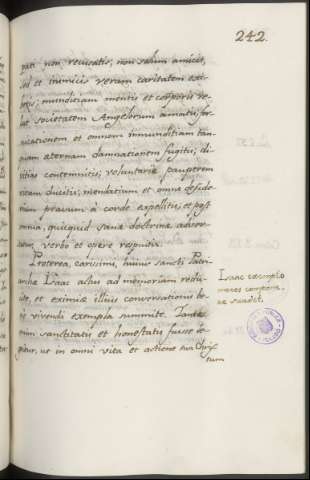 242.
pati non recusatis, non solum amicis,
sed et inimicis veram caritatem exi
betis; munditiam mentis et corporis ve
lut societatem Angelorum amatis; for
nicationem et omnem inmunditiam tan
quam aeternam damnationem fugitis; di
vitias contemnitis; voluntarie pauperem
vitam ducitis; mendatium et omne deside
rium pravum à corde expellitis; et post
omnia, quicquid sanae doctrinae adver
verbo et opere respuitis.
Preterea, carissimi, huius sancti Patri
archae Isaac actus ad memoriam redu
cite, et eximiae illius conversationis be
ne vivendi exempla summite. Tantae
enim sanctitatis et honestatis fuisse le
gitur, ut in omni vita et actione sua Chris
tum
Isaac exemplo
mores componere
suadet.